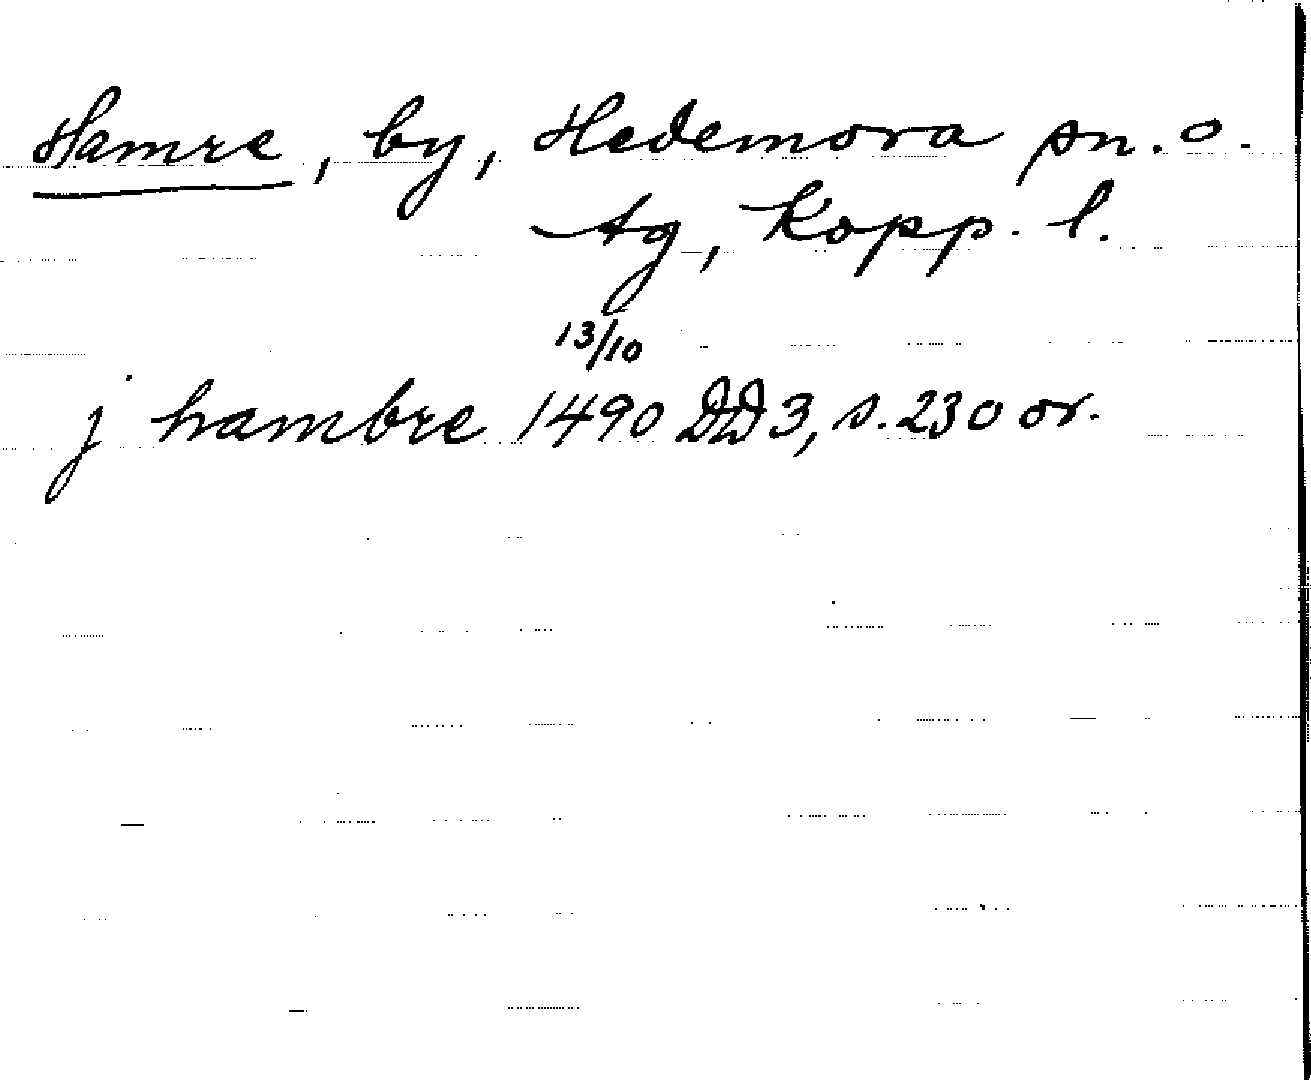 Hamre, by, Hedemora sn. o.
tg, Kopp. l.
13/10
j hambre 1490 DD 3, s. 230 or.